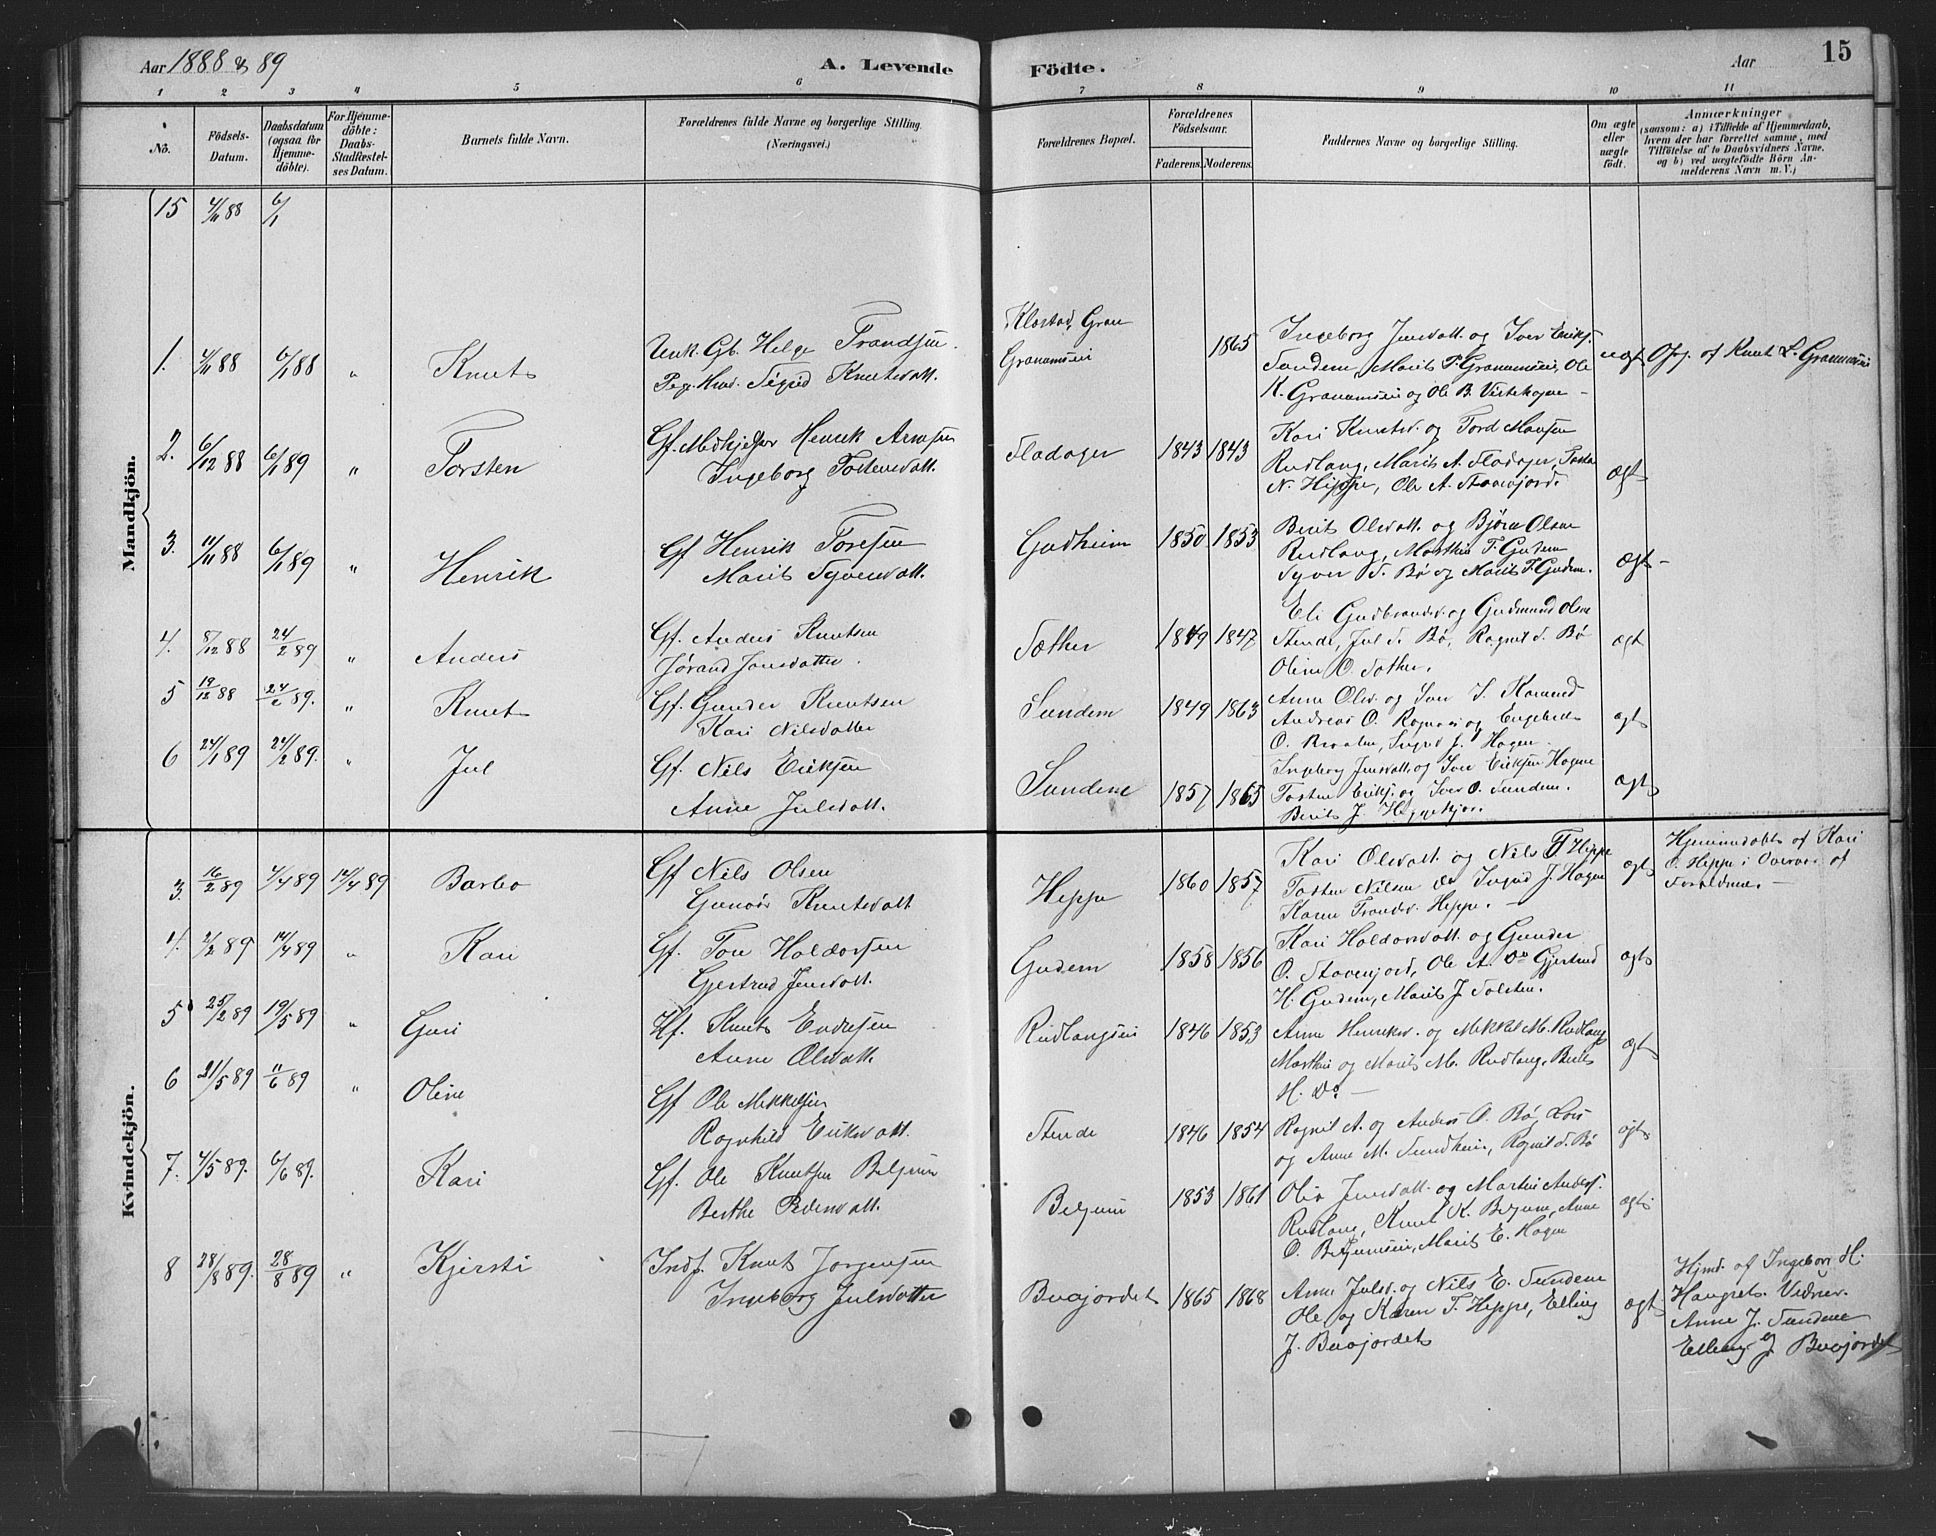 Aar 1888 & 89
A. Levende Födte.
Aar
15
1 2 3 4 5 6 7 8 9 10 11
No.
Födsels-Datum.
Daabsdatum (ogsaa for Hjemme-döbte).
For Hjemme-döbte: Daabs-Stadfæstel-ses Datum.
Barnets fulde Navn.
Forældrenes fulde Navne og borgerlige Stilling.
(Næringsvei.)
Forældrenes Bopæl.
Forældrenes Födselsaar.
Faderens.
Moderens.
Faddernes Navne og borgerlige Stilling.
Om ægte eller uægte födt.
Anmærkninger
(saasom: a) i Tilfælde af Hjemmedaab, hvem der har forrettet samme, med Tilföielse af to Daabsvidners Navne, og b) ved uægtefödte Börn Anmelderens Navn m. V.)
Mandkjön.
15 4/11 88 6/1
1. 4/11 88 6/1 88 "
Knut
Unk. Gb. Helge Trandsen.
Pige Sigrid Knutsdatt.
Klostad, Gran
Granumsei
1865
Ingeborg Jensdatt. og Iver Eriks.
Sundem, Marit Granumsei, Ole
K. Granumsei og Ole B.
uægt
af Knut L. Granumsei
2. 6/12 88 6/1 89 "
Torsten
Gf. Medhjelper Henrik Arnesen
Ingeborg Tostensdatt.
Fladager
1843 1843
Kari Knutsd. og Tord Hansen
Rudlang, Marit A. Fladager,
N. Heppe, Ole A. Stavnjord.
ægt
3. 11/11 88 6/1 89 "
Henrik
Gf Henrik Toresen
Marit Syversdatt.
Gudheim
1850 1853
Berit Olsdatt. og Bjørn Olsen
Rudlang, Marthea T. Gudem
Syver S. Bø og Marit T. Gudem.
Ægt
4. 8/12 88 24/2 89 "
Anders
Gf. Anders Knutsen
Jørand Jonsdatter.
Sæther
1849 1847
Eli Gudbrandsd. og Gudmund Olsen
Stende, Jul S. Bø, Ragnil S. Bø
Oline O. Sæther.
ægt
5 19/12 88 24/2 89. "
Knut
Gf. Gunder Knutsen
Kari Nilsdatter
Sundem
1849 1863
Anne Olsd. og Iver J.
Andreas O. og Engebret
O. Braaten, Ingrid J. Hagen.
ægt
6 24/1 89 24/2 89. "
Jul
Gf. Nils Eriksen
Anne Julsdatt.
Sundene
1857 1865
Ingeborg Jensdatt. og Iver Eriksen Hagene
Tosten Eriks. og Iver O. Sundem.
Berit J.
ægt
Kvindekjön.
3. 16/2 89 4/4 89 14/4 89
Barbo
Gf Nils Olsen
Gunør Knutsdatt
Heppe
1860 1857
Kari Olsdatt. og Nils T. Heppe
Tosten Nilsen Do Ingrid J. Hagen
Karen Trondsd. Heppe.
ægt
Hjemmedøbt af Kari
O. Heppe i Overvær af
Forældrene.
4. 2/2 89 14/4 89 "
Kari
Gf. Tore Haldorsen
Gjertrud Jensdatt.
Gudem
1858 1856
Kari Haldorsdatt. og Gunder
O. Stavenjord, Ole A. Do Gjertrud
H. Gudem, Marit J. Solsten.
ægt
5 25/2 89 19/5 89 "
Guri
Hf. Knut Endresen
Anne Olsdatt.
Rudlangsei
1846 1853
Anne Henriksd. og Mikkel M. Rudlang
Marthea og Marit M. Rudlang, Berit
H. Do
ægt
6 21/5 89 11/6 89 "
Oline
Gf Ole Mikkelsen
Ragnhild Eriksdatt.
Stende
1846 1854
Ragnil A. og Anders O. Bø,
og Anne M. Sundheim, Ragnil S. Bø
ægt
7. 4/5 89. 6/6 89.
Kari
Gf. Ole Knutsen Beljum
Berthe Pedersdatt.
Beljum
1853 1861
Olia Jensdatt. og Martin Anders.
Rudlang, Knut K. Beljum, Anne
O. Beljumsei, Marit E. Hagen
ægt
8 28/8 89. 28/8 89 "
Kjersti
Indf. Knut Jørgensen
Ingeborg Julsdatter
Buajordet
1865 1868
Anne Julsd. og Nils E. Sundene
Ole og Karen T. Heppe, Elling
J. Buajordet
ægt
Hjmd. af Ingeborg H.
Haugret. Vidner.
Anne J. Sundene
Elling J Buajordet